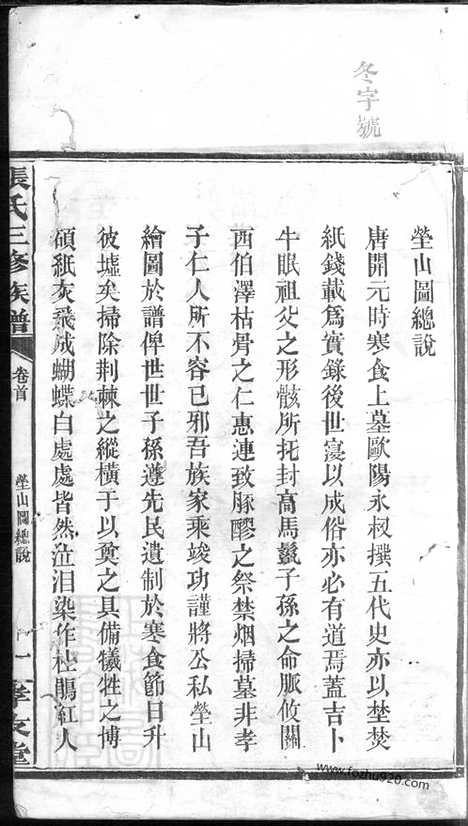 冬字號
塋山圖總說
唐開元時寒食上墓歐陽永叔撰五代史亦以埜焚
紙錢載爲實錄後世寖以成俗亦必有道焉蓋吉卜
牛眠祖父之形骸所托封高馬鬣子孫之命脈攸關
西伯澤枯骨之仁惠連致豚醪之祭禁烟掃墓非孝
子仁人所不容已邪吾族家乘竣功謹將公私塋山
繪圖於譜俾世世子孫遵先民遺制於寒食節日升
彼墟矣掃除荆棘之縱橫于以奠之具備犧牲之博
碩紙灰飛成蝴蝶白處處皆然泣泪染作杜鵑紅人
張氏三修族譜
卷首
塋山圖總說
一
孝友堂
www.fozhu920.com